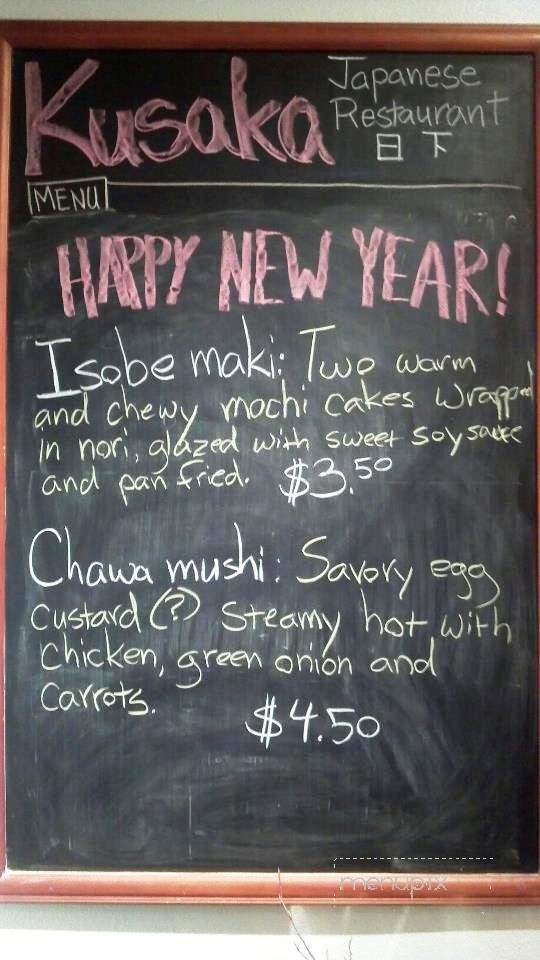 Kusaka
Japanese
Restaurant
日下
MENU
HAPPY NEW YEAR!
Isobe maki: Two warm
and chewy mochi cakes wrapped
in nori, glazed with sweet soy sauce
and pan fried. $3.50
Chawa mushi: Savory egg
custard (?) steamy hot with
chicken, green onion and
carrots.
$4.50
menupix